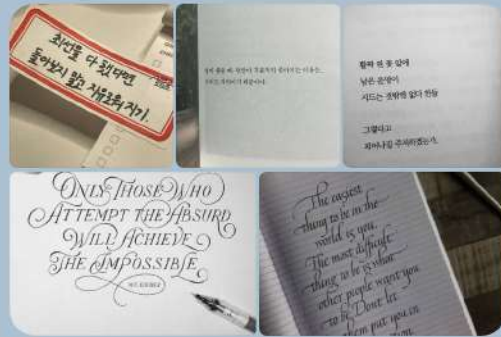 최선을 다 했다면
돌아보지 말고 자유로워 지기.
활짝 핀 꽃 앞에
남은 운명이
시드는 것밖엔 없다 한들
그렇다고
피어나길 주저하겠는가.
ONLY THOSE WHO
ATTEMPT THE ABSURD
WILL ACHIEVE
THE IMPOSSIBLE
M.C. ESCHER
The easiest
thing to be in the
world is you.
The most difficult
thing to be is what
other people want you
to be. Don't let
them put you in